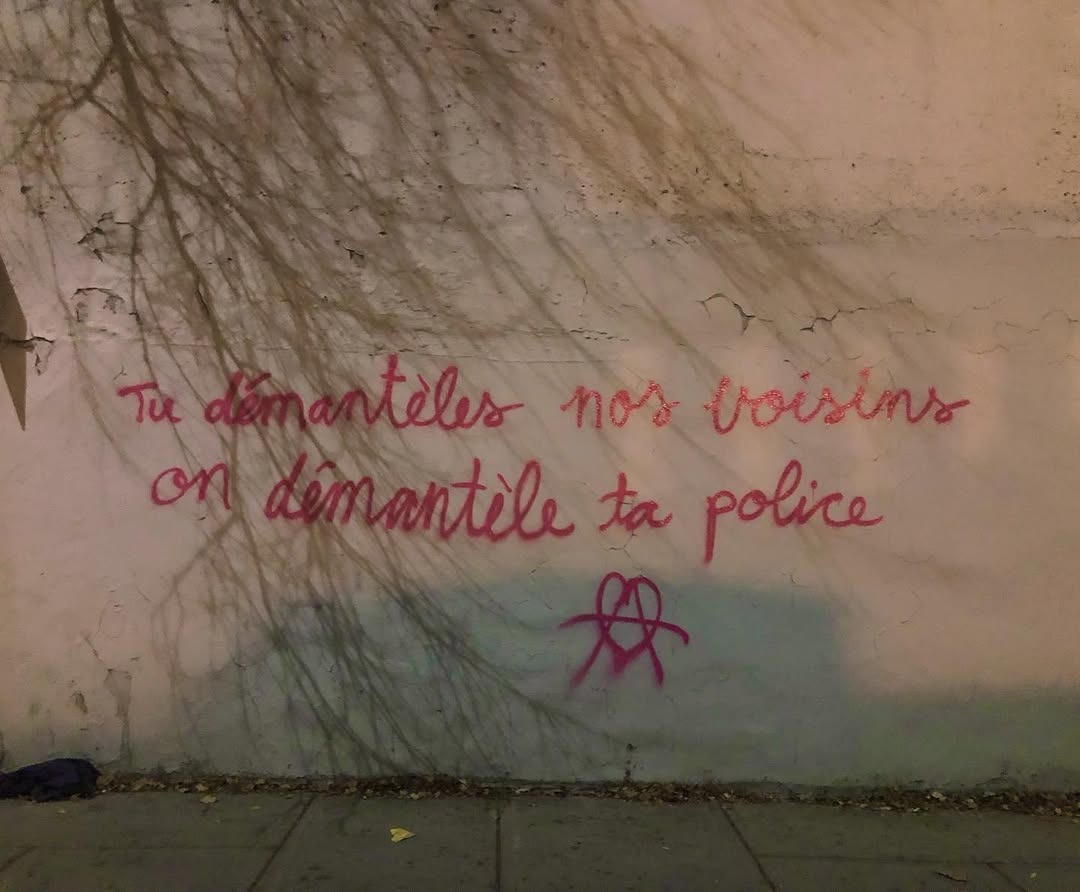 Tu démantèles nos voisins
on démantèle ta police